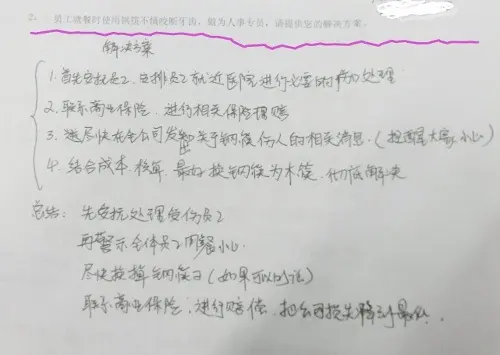 2. 员工就餐时使用钢筷不慎咬断牙齿,做为人事专员,请提供您的解决方案。
解决方案
1. 首先安抚员工,安排员工就近医院进行必要的治疗处理
2. 联系商业保险,进行相关保险理赔
3. 尽快在全公司发出关于钢筷伤人的相关消息.(提醒大家小心)
4. 结合成本核算 最好换钢筷为木筷,彻底解决
总结: 先安抚处理受伤员工
再警示全体员工用餐小心.
尽快换掉钢筷子(如果可以的话)
联系商业保险,进行赔偿,把公司损失降到最低.